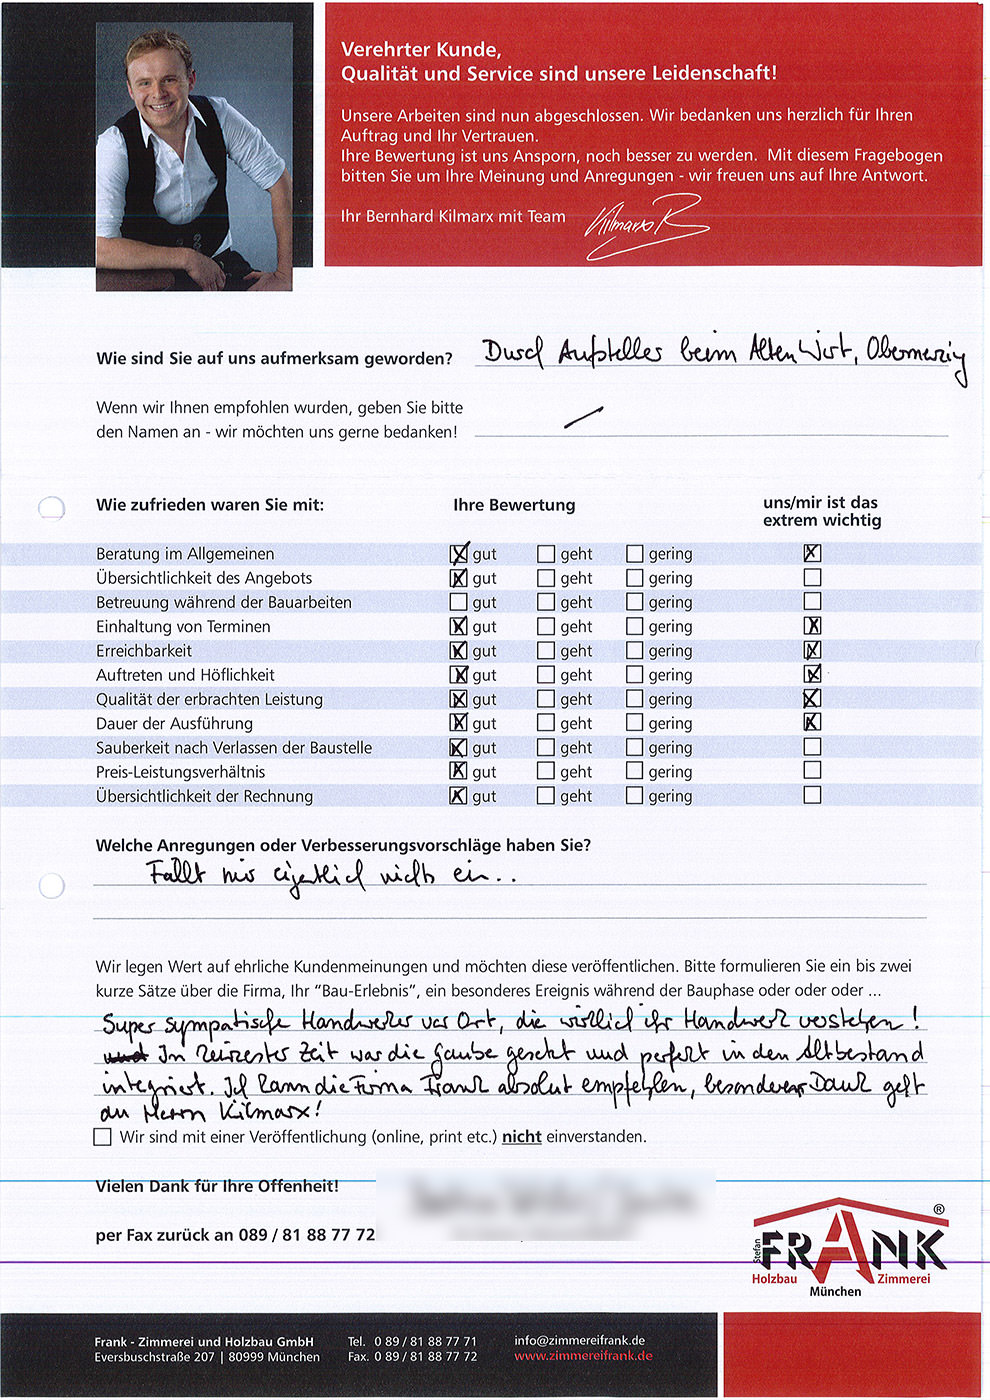 Verehrter Kunde,
Qualität und Service sind unsere Leidenschaft!
Unsere Arbeiten sind nun abgeschlossen. Wir bedanken uns herzlich für Ihren
Auftrag und Ihr Vertrauen.
Ihre Bewertung ist uns Ansporn, noch besser zu werden. Mit diesem Fragebogen
bitten Sie um Ihre Meinung und Anregungen - wir freuen uns auf Ihre Antwort.
Ihr Bernhard Kilmarx mit Team Kilmarx B
Wie sind Sie auf uns aufmerksam geworden? Durch Aufsteller beim Alten Wirt, Obermenzing
Wenn wir Ihnen empfohlen wurden, geben Sie bitte
den Namen an - wir möchten uns gerne bedanken!
Wie zufrieden waren Sie mit: Ihre Bewertung uns/mir ist das
extrem wichtig
Beratung im Allgemeinen gut geht gering
Übersichtlichkeit des Angebots gut geht gering
Betreuung während der Bauarbeiten gut geht gering
Einhaltung von Terminen gut geht gering
Erreichbarkeit gut geht gering
Auftreten und Höflichkeit gut geht gering
Qualität der erbrachten Leistung gut geht gering
Dauer der Ausführung gut geht gering
Sauberkeit nach Verlassen der Baustelle gut geht gering
Preis-Leistungsverhältnis gut geht gering
Übersichtlichkeit der Rechnung gut geht gering
Welche Anregungen oder Verbesserungsvorschläge haben Sie?
Fällt mir eigentlich nichts ein..
Wir legen Wert auf ehrliche Kundenmeinungen und möchten diese veröffentlichen. Bitte formulieren Sie ein bis zwei
kurze Sätze über die Firma, Ihr "Bau-Erlebnis", ein besonderes Ereignis während der Bauphase oder oder oder ...
Super sympatische Handwerker vor Ort, die wirklich ihr Handwerk verstehen!
und In kürzester Zeit war die Gaube gesetzt und perfekt in den Altbestand
integriert. Ich kann die Firma Frank absolut empfehlen, besonderer Dank geht
an Herrn Kilmarx!
Wir sind mit einer Veröffentlichung (online, print etc.) nicht einverstanden.
Vielen Dank für Ihre Offenheit!
per Fax zurück an 089 / 81 88 77 72
Stefan FRANK ®
Holzbau Zimmerei
München
Frank - Zimmerei und Holzbau GmbH Tel. 0 89 / 81 88 77 71 info@zimmereifrank.de
Eversbuschstraße 207 | 80999 München Fax. 0 89 / 81 88 77 72 www.zimmereifrank.de